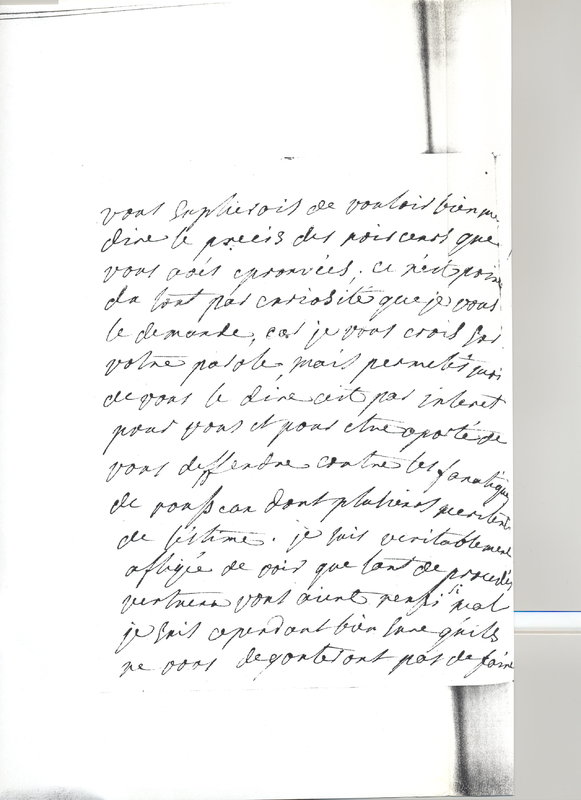 vous suplierois de vouloir bien me
dire le precis des noirceurs que
vous avés eprouvées, ce n'est point
du tout par curiosité que je vous
le demande, car je vous crois sur
votre parole, mais permetés moi
de vous le dire c'est par interet
pour vous et pour etre aporté de
vous deffendre contre les fanatiques
de rousseau dont plusieurs meritent
de l'estime. je suis veritablement
afligée de voir que tant de procedés
vertueux vous aient reussi si mal
je suis cependant bien sure qu'ils
ne vous degouteront pas de faire